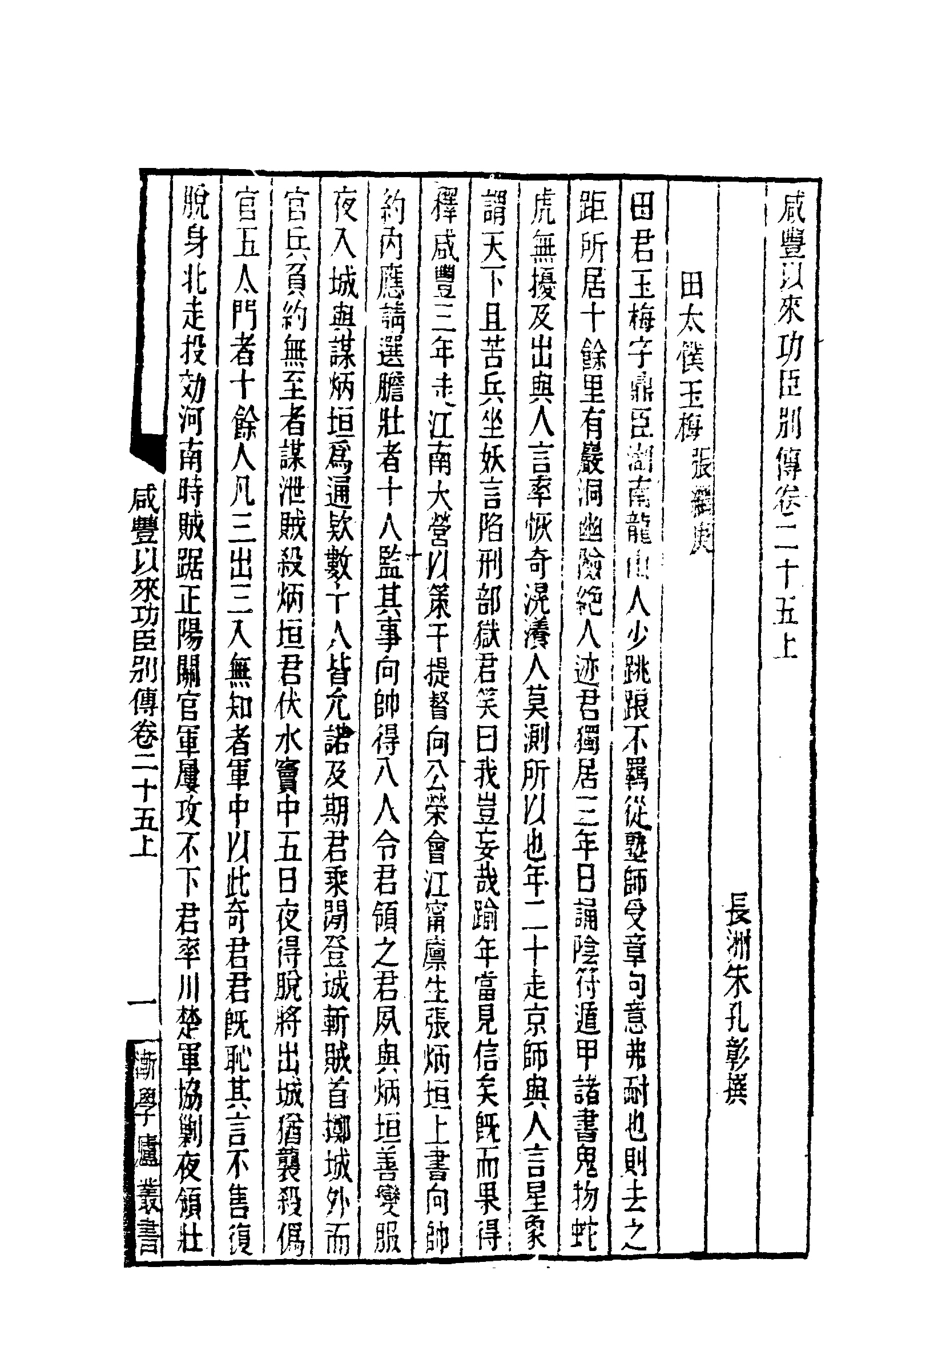 咸豐以來功臣別傳卷二十五上
長洲朱孔彰撰
田太僕玉梅 張繼庚
田君玉梅字鼎臣湖南龍山人少跳踉不羈從塾師受章句意弗耐也則去之
距所居十餘里有巖洞幽險絕人迹君獨居三年日誦陰符遁甲諸書鬼物蛇
虎無擾及出與人言率恢奇滉瀁人莫測所以也年二十走京師與人言星象
謂天下且苦兵坐妖言陷刑部獄君笑曰我豈妄哉踰年當見信矣旣而果得
釋咸豐三年走江南大營以策干提督向公榮會江甯廪生張炳垣上書向帥
約內應請選膽壯者十人監其事向帥得八人令君領之君夙與炳垣善變服
夜入城與謀炳垣爲通欵數千人皆允諾及期君乘閒登城斬賊首擲城外而
官兵負約無至者謀泄賊殺炳垣君伏水竇中五日夜得脫將出城猶襲殺僞
官五人門者十餘人凡三出三入無知者軍中以此奇君君旣恥其言不售復
脫身北走投効河南時賊踞正陽關官軍屢攻不下君率川楚軍協剿夜領壯
咸豐以來功臣別傳卷二十五上
一
漸學廬叢書